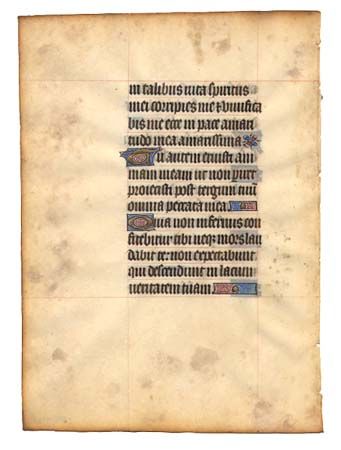 in talibus vita spiritus
mei corripies me & vivifica
bis me ecce in pace amari
tudo mea amarissima
Tu autem eruisti ani
mam meam ut non ꝑiret
proiecisti post tergum tuū
omnia peccata mea
Quia non infernus con
fitebitur tibi neqꝫ mors lau
dabit te non expectabunt
qui descendunt in lacum
veritatem tuam